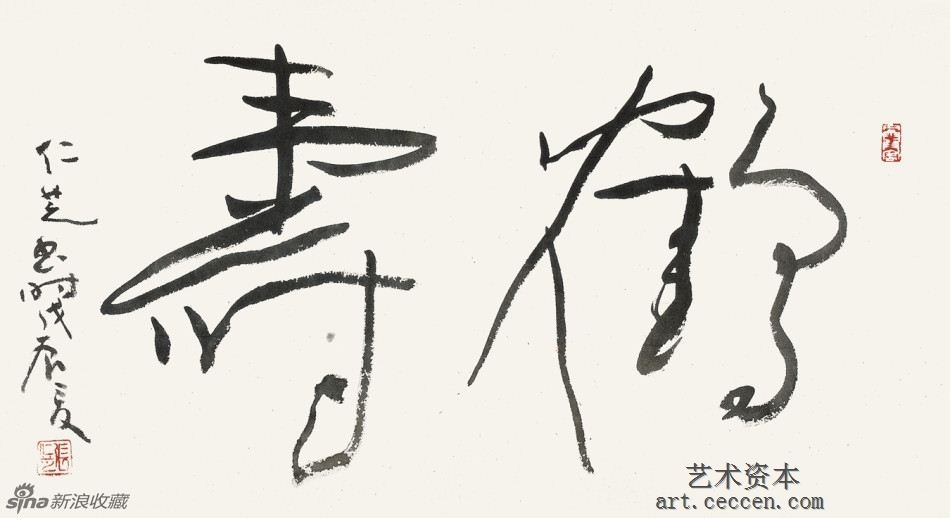 鹤寿
仁芝书时戊辰夏
艺术资本
art.ceccen.com
sina新浪收藏